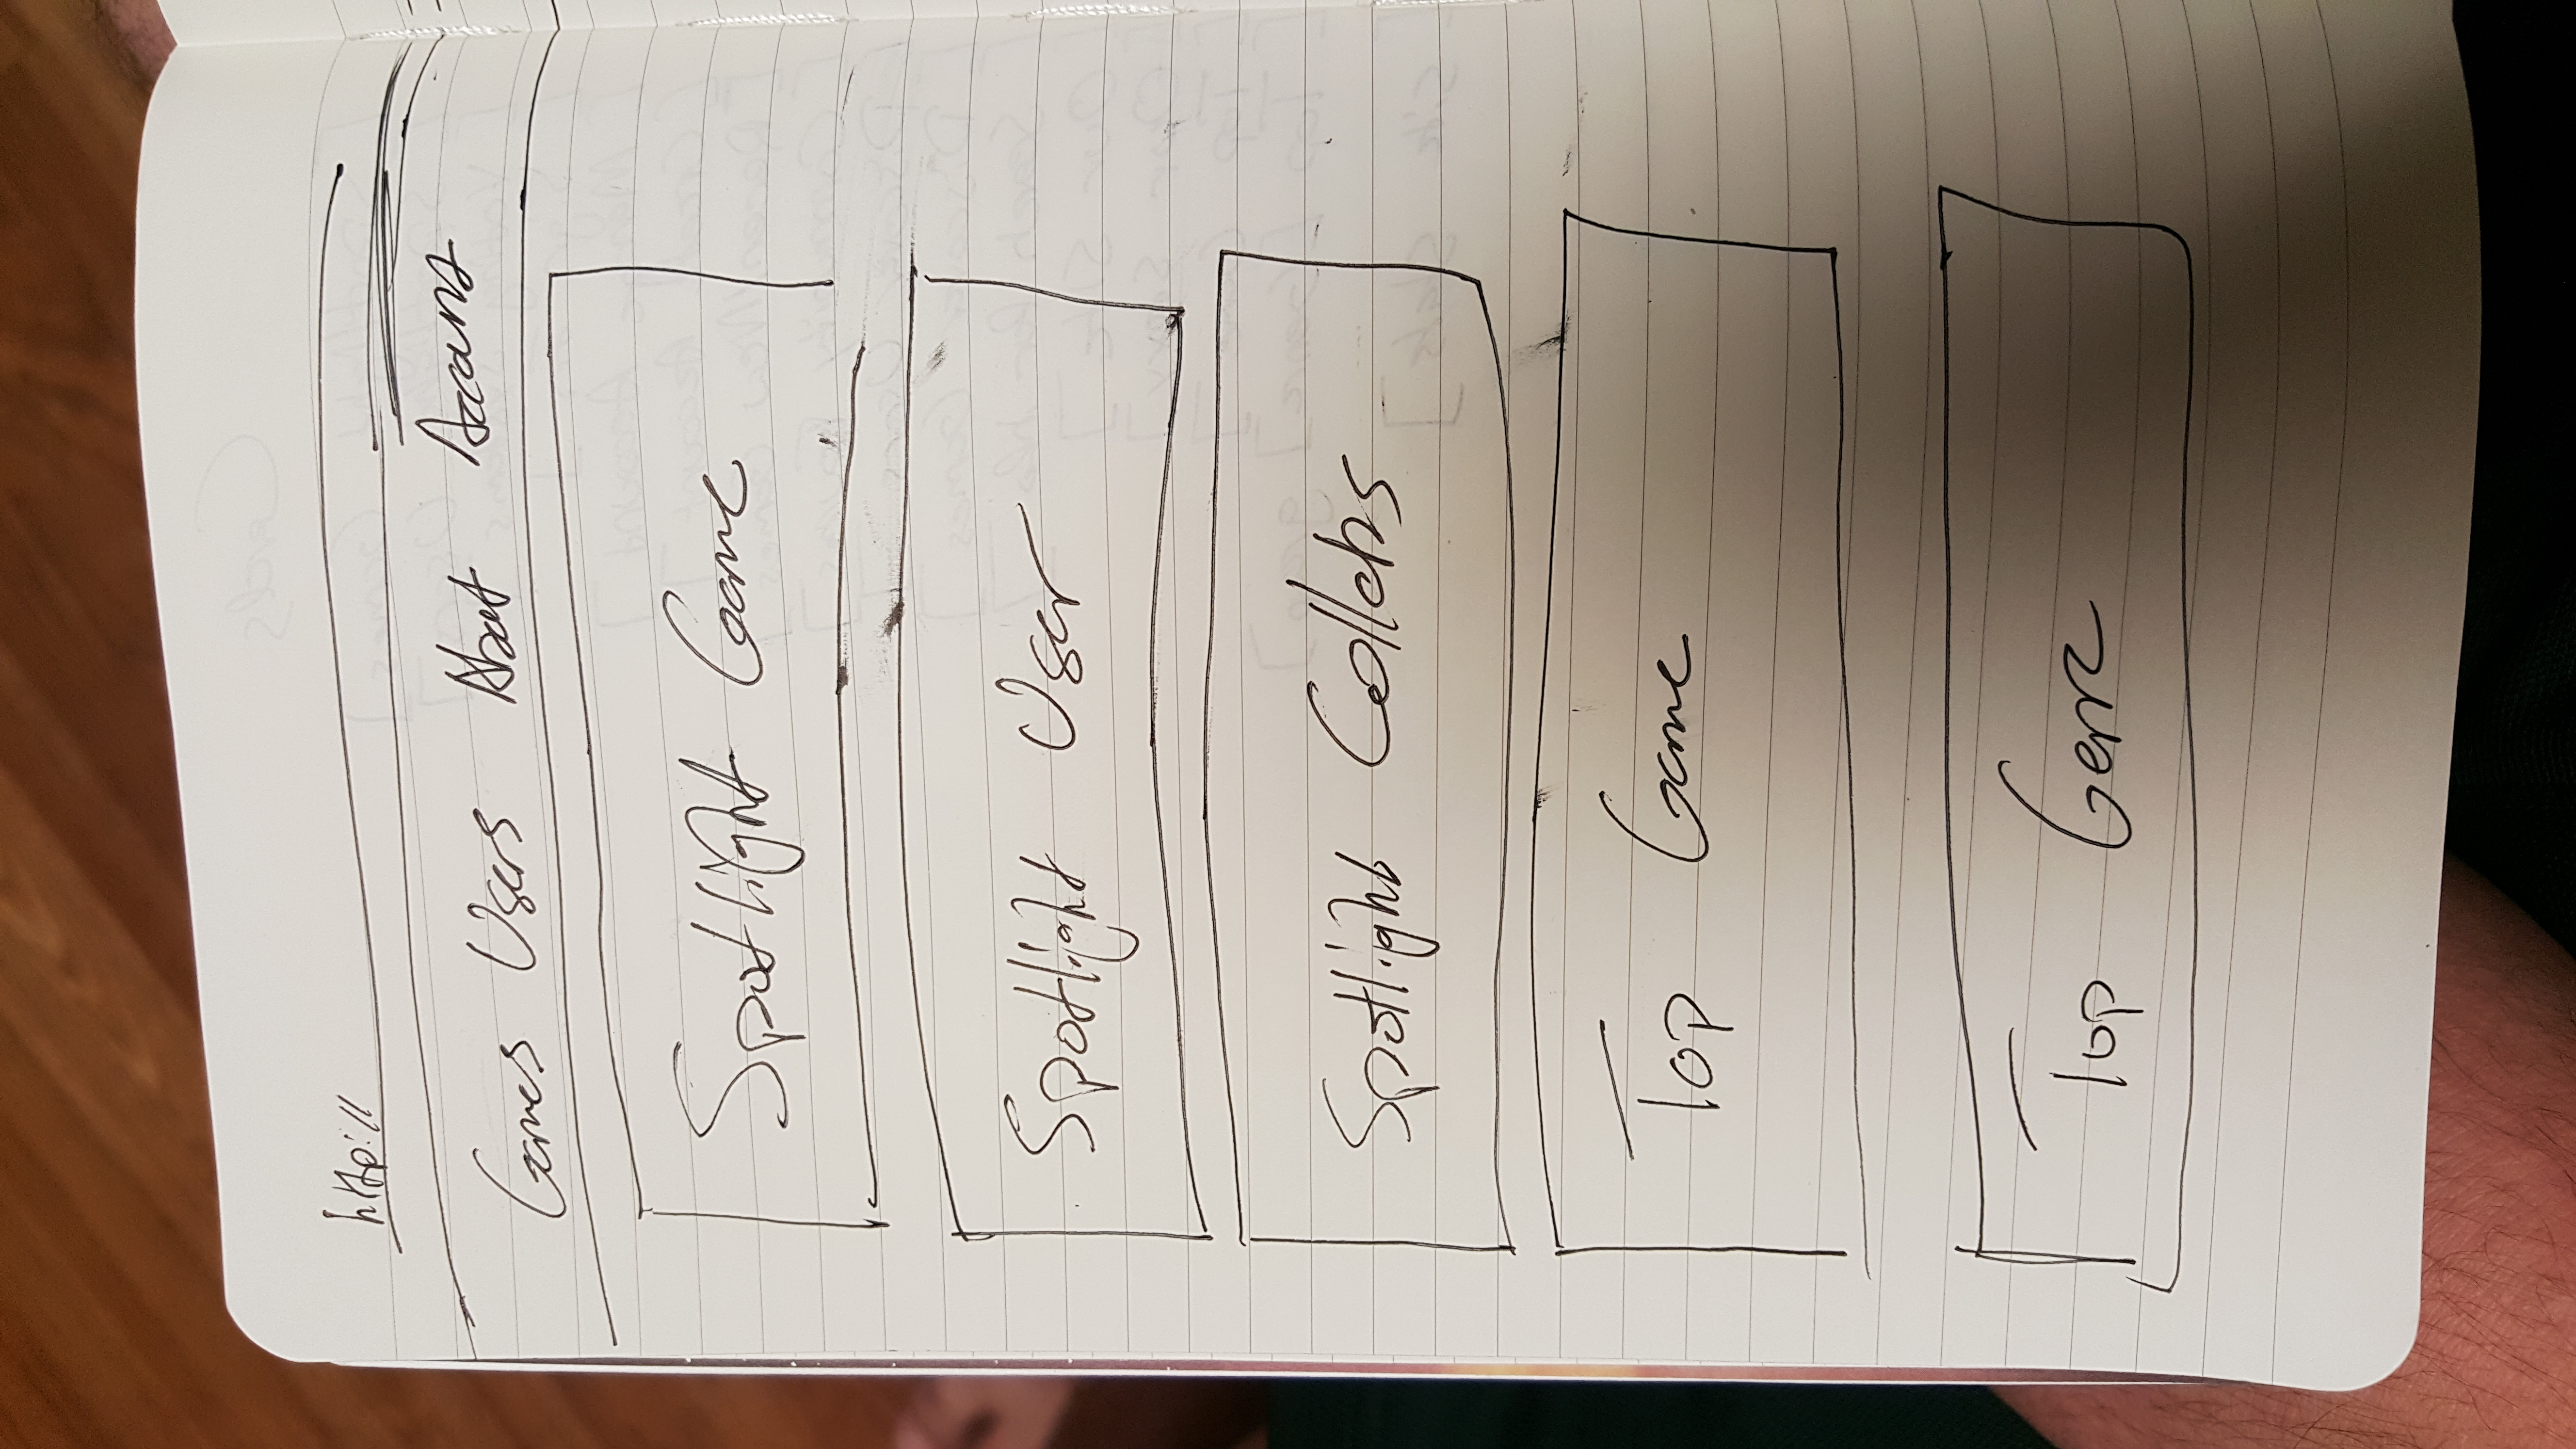 http://
Games Users About Account
Spotlight Game
Spotlight User
Spotlight
Top Game
Top Genre